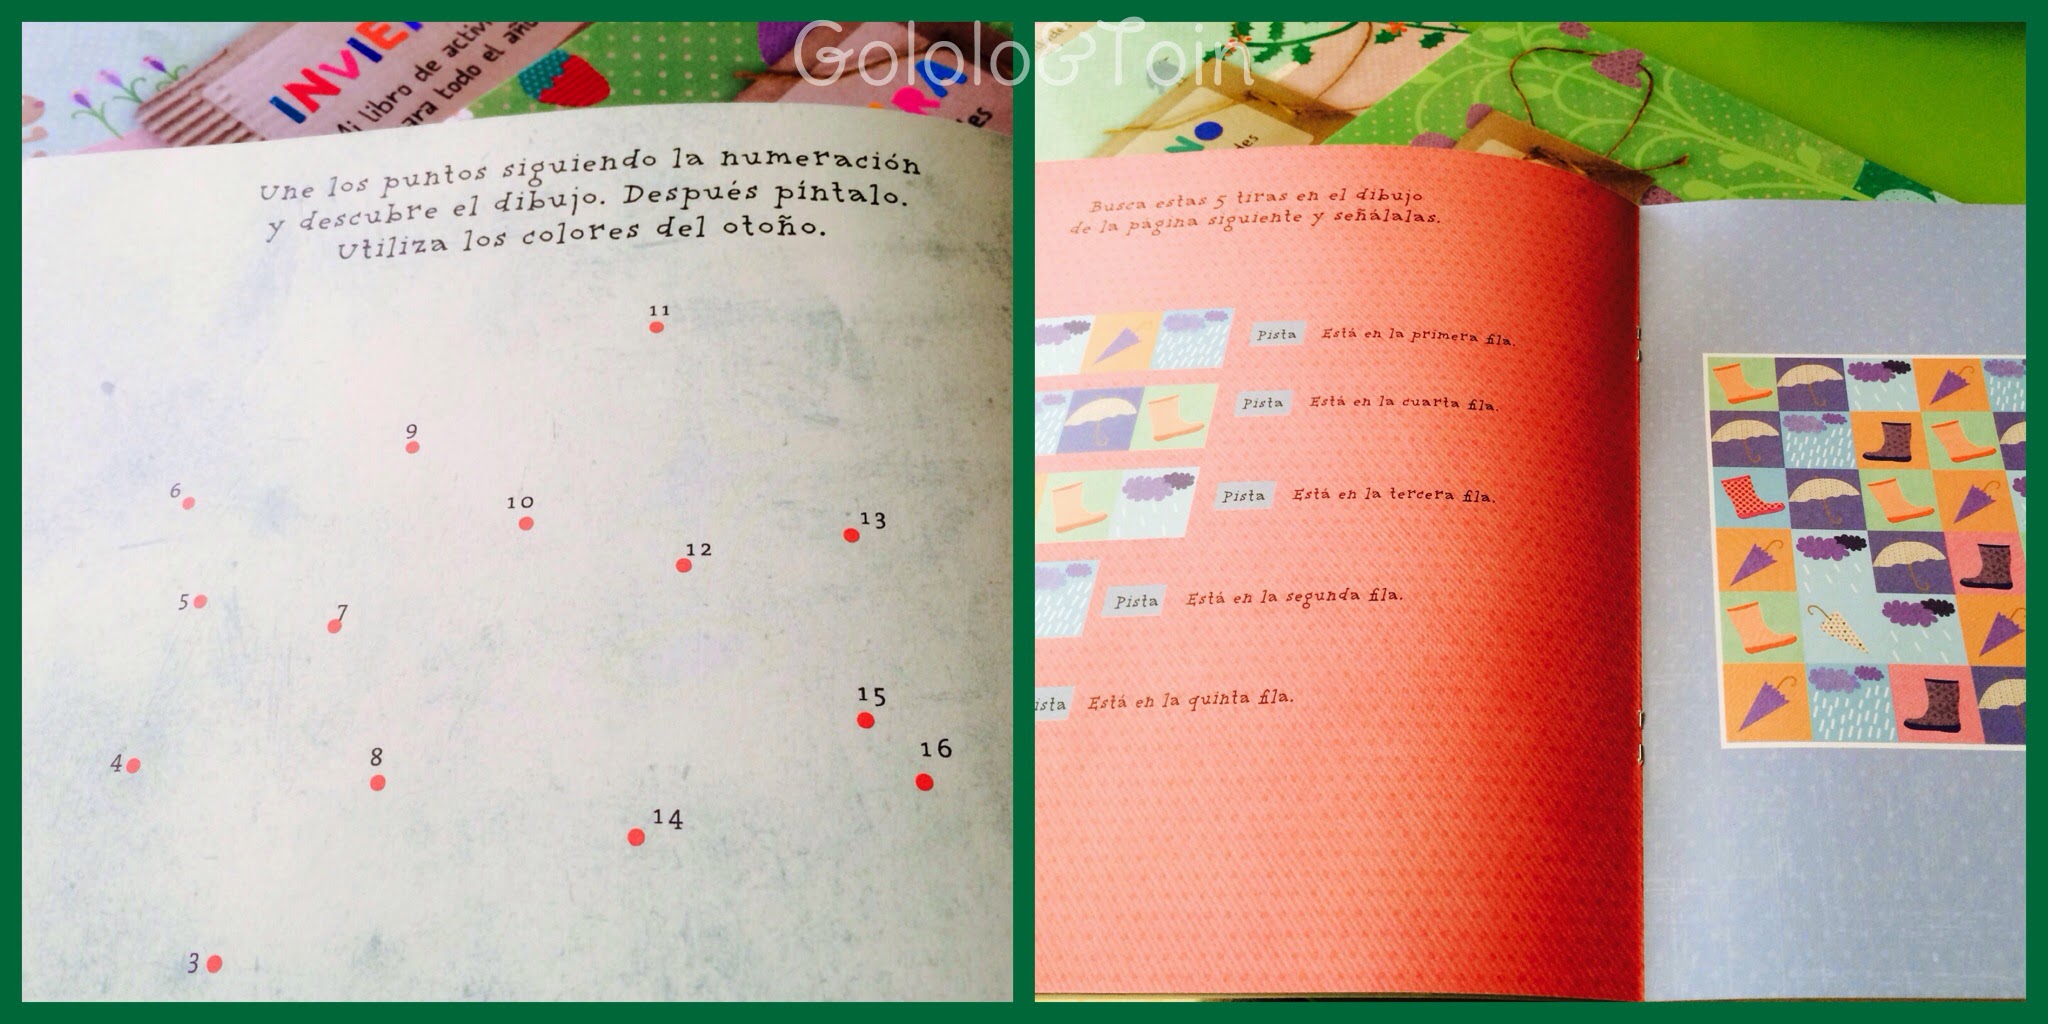 Gololo&Toin
INVIE
Mi libro de activi
para todo el año
RA
es
Une los puntos siguiendo la numeración
y descubre el dibujo. Después píntalo.
Utiliza los colores del otoño.
11
9
6
10
13
12
5
7
15
16
4
8
14
3
VO
des
Busca estas 5 tiras en el dibujo
de la página siguiente y señálalas.
Pista Está en la primera fila.
Pista Está en la cuarta fila.
Pista Está en la tercera fila.
Pista Está en la segunda fila.
ista Está en la quinta fila.